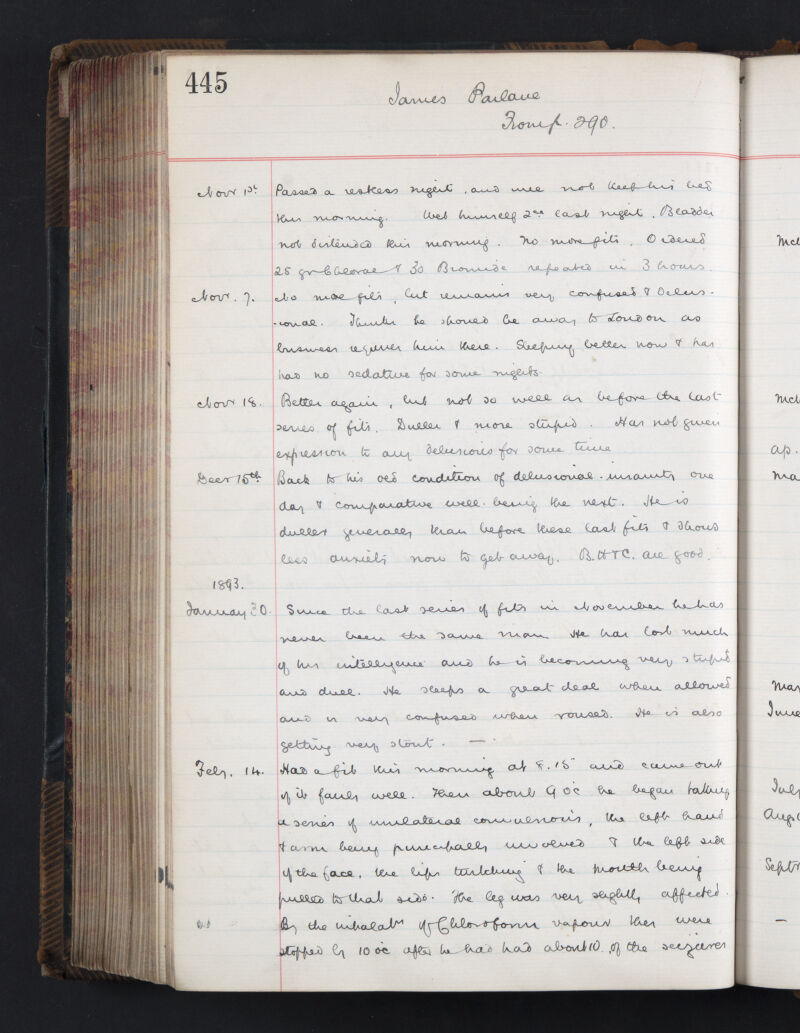 445
James Parlane
From p. 290.
Novr 1st Passed a restless night, and will not keep his bed
this morning. Wet himself 2ce last night. Bladder
not distended this morning. No more fits. Ordered
25 gr Chloral & 30 Bromide repeated in 3 hours.
Novr. 7. No more fits, but remains very confused & Delus-
-ional. Thinks he should be away to London as
business requires him there. Sleeping better now & has
had no sedative for some nights.
Novr 18. Better again, but not so well as before the last
series of fits. Duller & more stupid. Has not given
expression to any delusions for some time
Decr 15th Back to his old condition of delusional insanity one
day & comparative well-being the next. He is
duller generally than before these last fits & shows
less anxiety now to get away. B.H & C. are good.
1893.
January 30. Since the last series of fits in November he has
never been the same man. He has lost much
of his intelligence and he is becoming very stupid
and dull. He sleeps a great deal when allowed
and is very confused when roused. He is also
getting very stout. —
Feby. 14. Had a fit this morning at 8.15 and came out
of it fairly well. Then about 9 oc he began taking
a series of unilateral convulsions, the left hand
& arm being principally involved & the left side
of the face, the lips twitching & the mouth being
pulled to that side. The leg was very slightly affected.
By the inhalatn of Chloroform vapour they were
stopped by 10 oc after he had had about 10 of the seizures
Mch
Mch
ap.
Ma
May
June
July
Augt
Septr
—